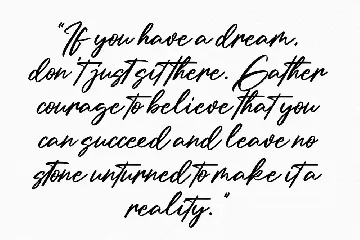 "If you have a dream.
don't just sit there. Gather
courage to believe that you
can succeed and leave no
stone unturned to make it a
reality."